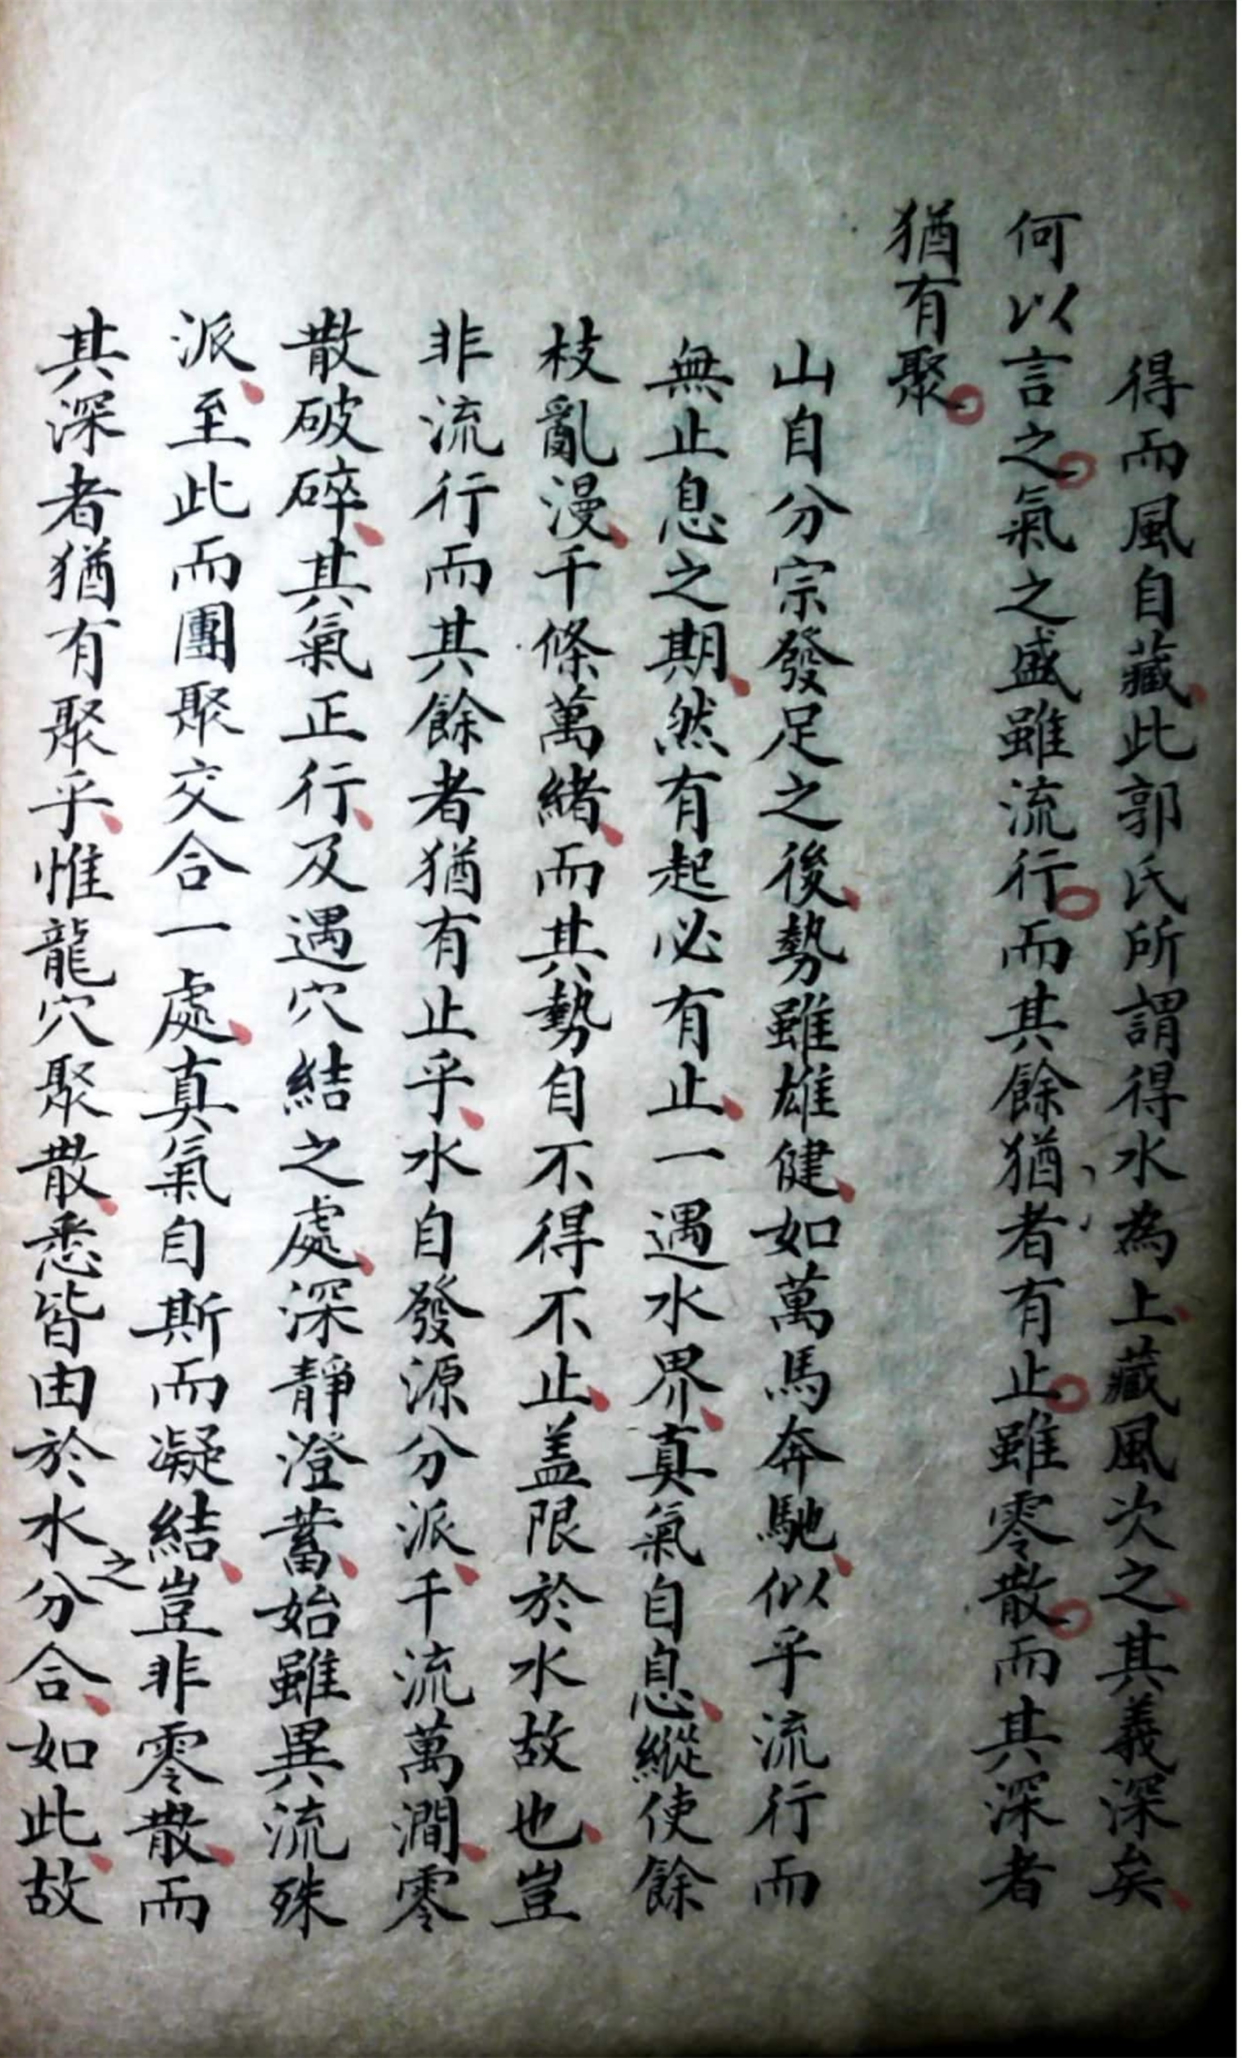 得而風自藏、此郭氏所謂得水為上、藏風次之、其義深矣、
何以言之。氣之盛雖流行。而其餘猶者有止。雖零散。而其深者
猶有聚。
山自分宗發足之後、勢雖雄健、如萬馬奔馳、似乎流行而
無止息之期、然有起必有止、一遇水界、真氣自息、縱使餘
枝亂漫、千條萬緒、而其勢自不得不止、盖限於水故也、豈
非流行而其餘者猶有止乎、水自發源分派、千流萬澗、零
散破碎、其氣正行、及遇穴結之處、深靜澄蓄、始雖異流殊
派、至此而團聚交合一處、真氣自斯而凝結、豈非零散、而
其深者猶有聚乎、惟龍穴聚散、悉皆由於水之分合、如此、故